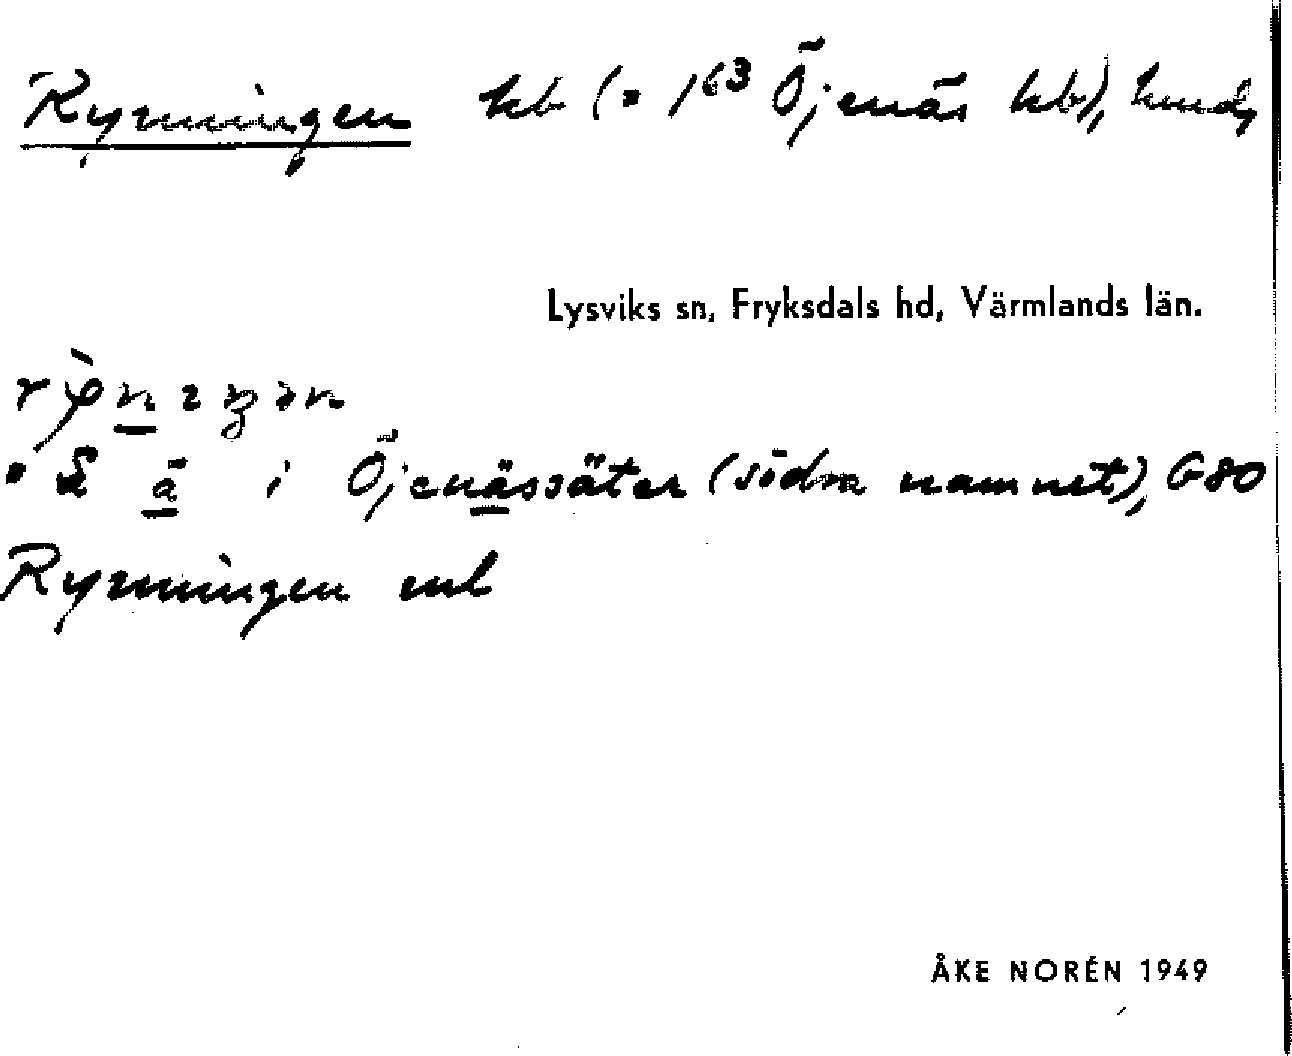 Rynningen hb (= 1⁶³ Öjenäs hb), hmd,
Lysviks sn, Fryksdals hd, Värmlands län.
i Öjenässäter (södra namnet), G80
Rynningen ml
ÅKE NORÉN 1949